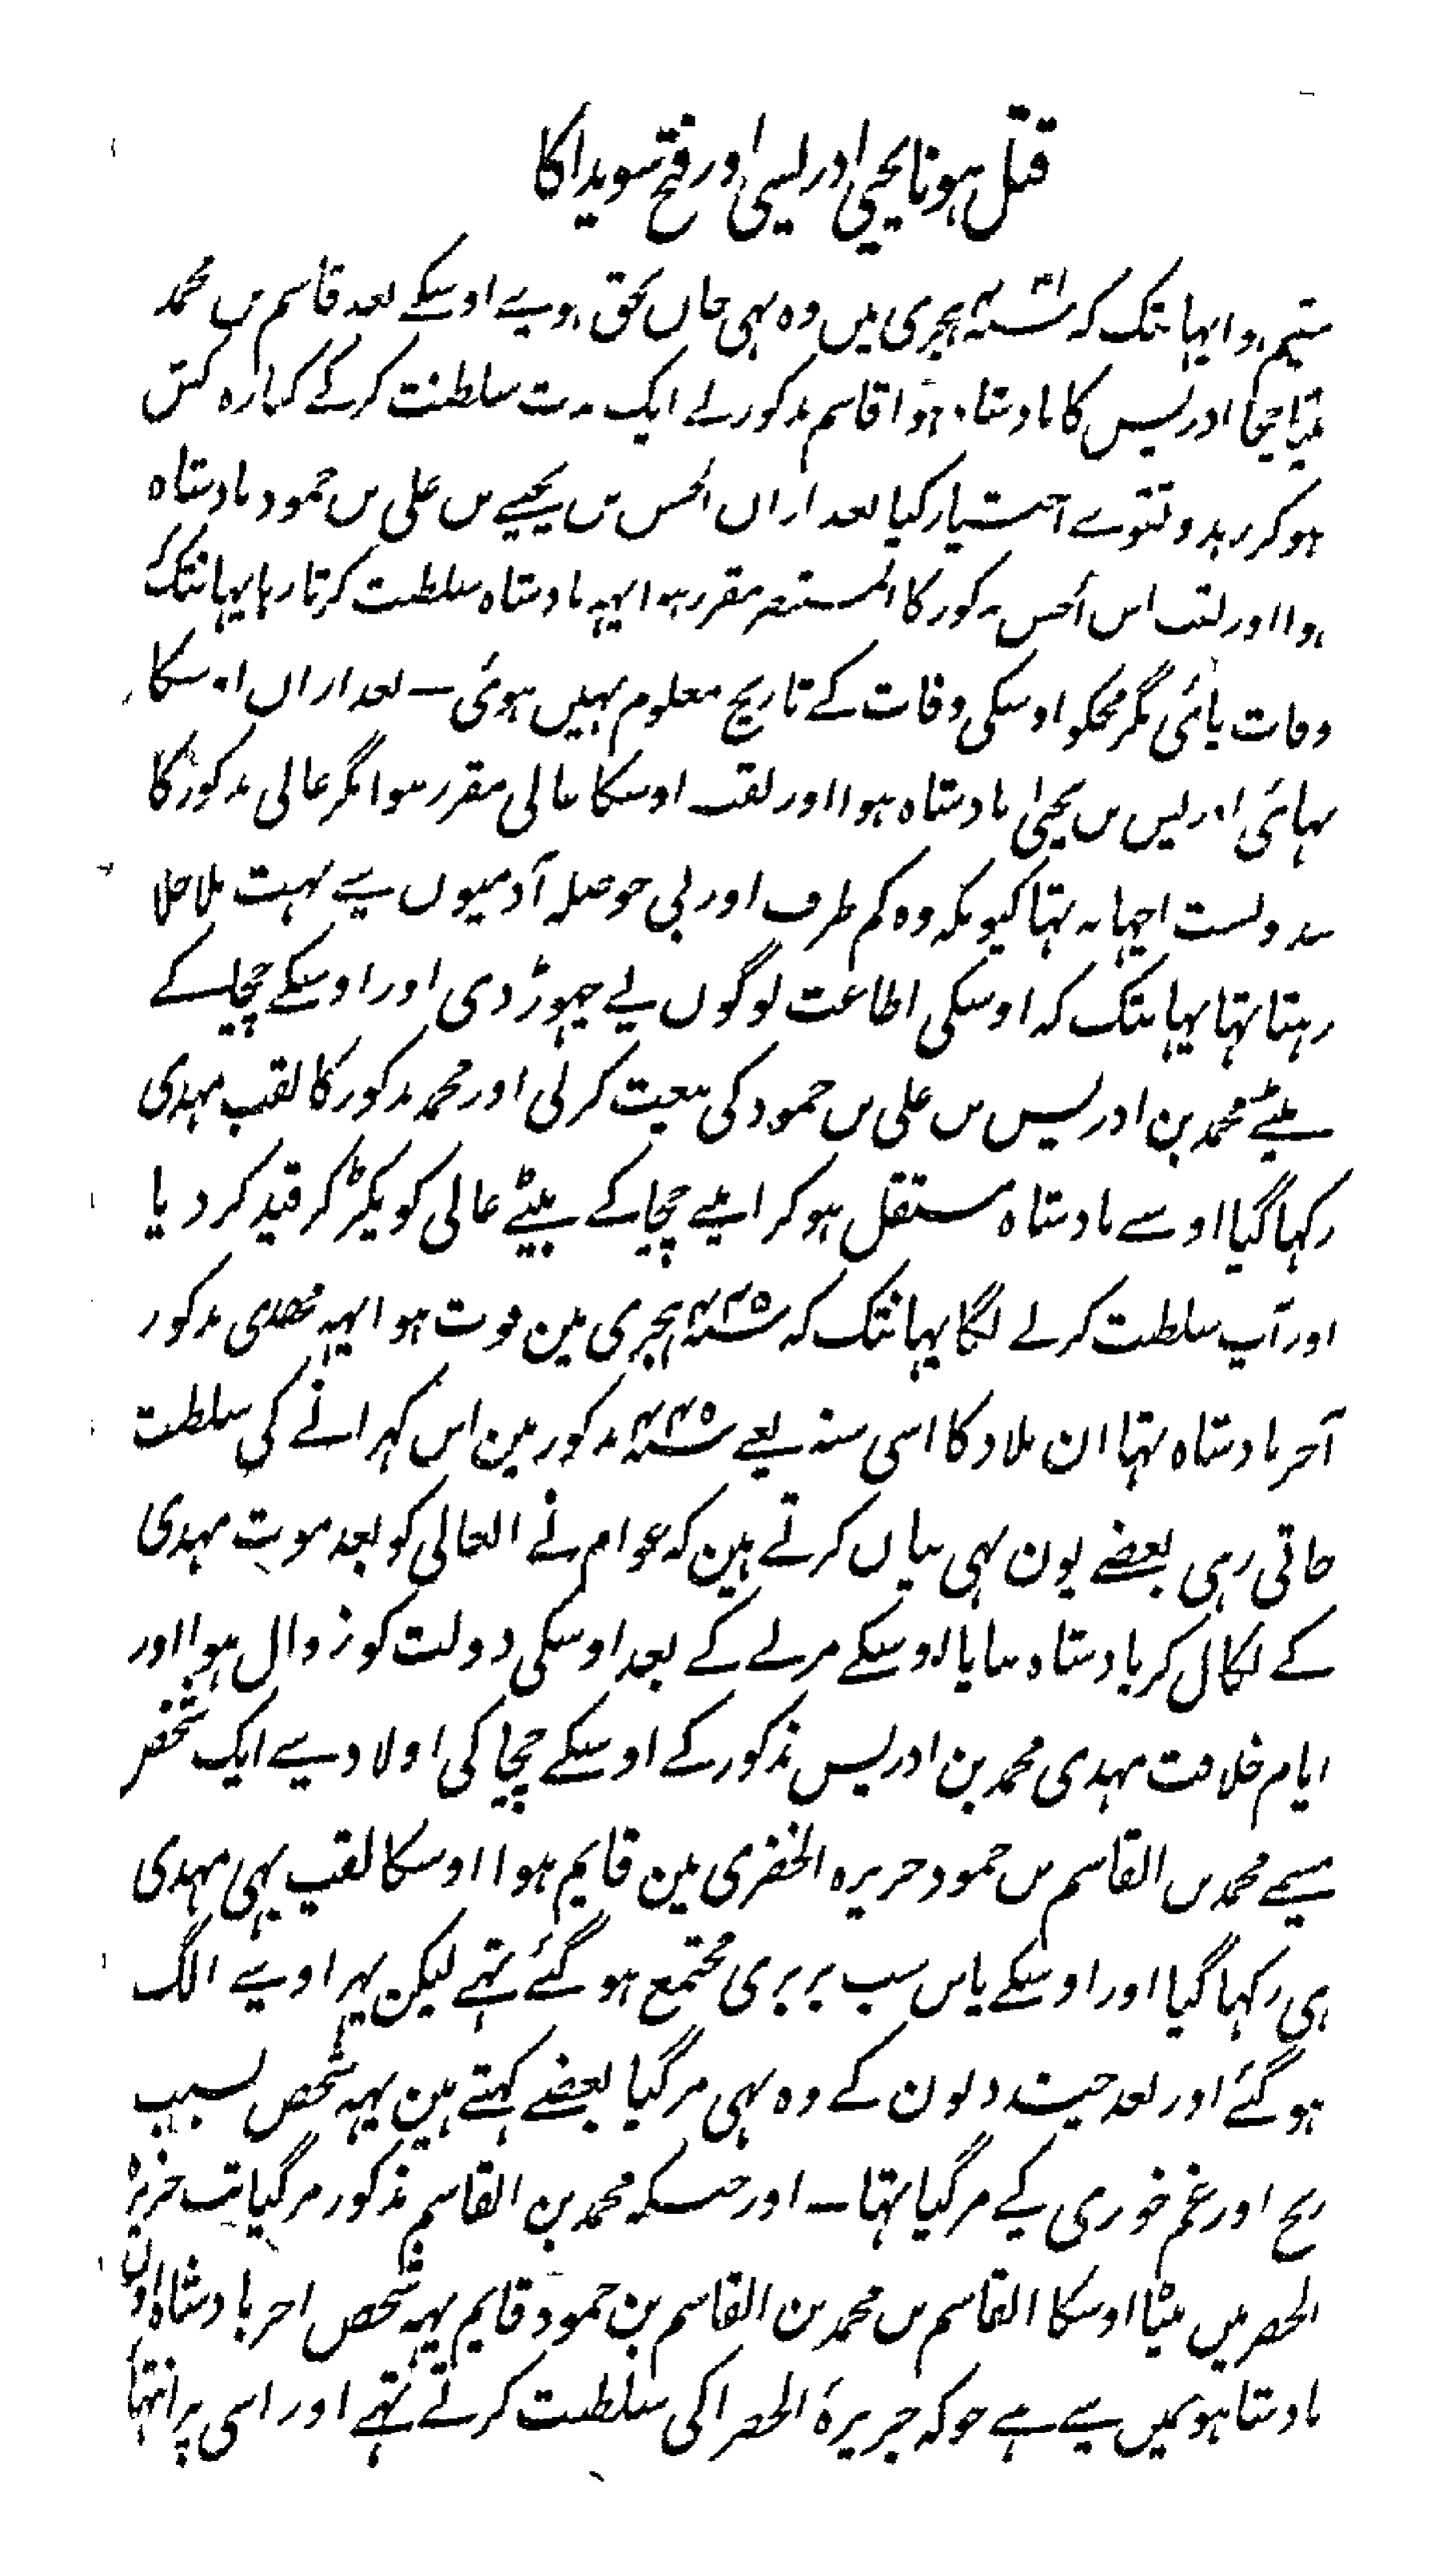 قتل ہونا یحیی ادریسی اور فتح سویدا کا
مقیم ہوا یہانتک کہ سنہ ۴۳۱ ہجری میں وہ بہی جاں بحق ہوے اوسکے بعد قاسم بن محمد
بہتیجا ادریس کا بادشاہ ہوا قاسم مذکور نے ایک مدت سلطنت کرکے کنارہ کش
ہوکر زہد و تقوے اختیار کیا بعد ازاں الحسن بن یحیے بن علی بن حمود بادشاہ
ہوا اور لقب اس الحسن مذکور کا المستنصر مقرر ہوا یہہ بادشاہ سلطنت کرتا رہا یہانتک کہ
وفات پائی مگر مجکو اوسکی وفات کے تاریخ معلوم نہیں ہوئی ــ بعد ازاں اوسکا
بہائی ادریس بن یحییٰ بادشاہ ہوا اور لقب اوسکا عالی مقرر ہوا مگر عالی مذکور کا
بندوبست اچہا نہ تہا کیونکہ وہ کم ظرف اور بی حوصلہ آدمیوں سے بہت ملا جلا
رہتا تہا یہانتک کہ اوسکی اطاعت لوگوں نے چہوڑ دی اور اوسکے چچا کے
بیٹے محمد بن ادریس بن علی بن حمود کی بیعت کرلی اور محمد مذکور کا لقب مہدی
رکہا گیا اوسے بادشاہ مستقل ہوکر اپنے چچا کے بیٹے عالی کو پکڑ کر قید کر دیا
اور آپ سلطنت کرنے لگا یہانتک کہ سنہ ۴۴۵ ہجری مین فوت ہوا یہہ مہدی مذکور
آخر بادشاہ تہا ان بلاد کا اسی سنہ یعنے سنہ ۴۴۵ مذکور مین اس گہرانے کی سلطنت
جاتی رہی بعضے یون بہی بیاں کرتے ہین کہ عوام نے العالی کو بعد موت مہدی
کے نکال کر بادشاہ بنایا اوسکے مرنے کے بعد اوسکی دولت کو زوال ہوا اور
ایام خلافت مہدی محمد بن ادریس مذکور کے اوسکے چچا کی اولاد سے ایک شخص
مسمے محمد بن القاسم بن حمود جزیرہ الخضری مین قایم ہوا اوسکا لقب بہی مہدی
ہی رکہا گیا اور اوسکے پاس سب بربری مجتمع ہوگئے تہے لیکن پہر اوسے الگ
ہوگئے اور بعد چند دنون کے وہ بہی مرگیا بعضے کہتے ہین یہہ شخص بسبب
رنج اور غم خوری کے مرگیا تہا ــ اور جسکہ محمد بن القاسم مذکور مرگیا تب جزیرۃ
الخضر میں بیٹا اوسکا القاسم بن محمد بن القاسم بن حمود قایم یہہ شخص اخر بادشاہ اون
بادشاہونمیں سے ہے جو کہ جزیرۂ الخضرا کی سلطنت کرتے تہے اور اسی پر انتہا